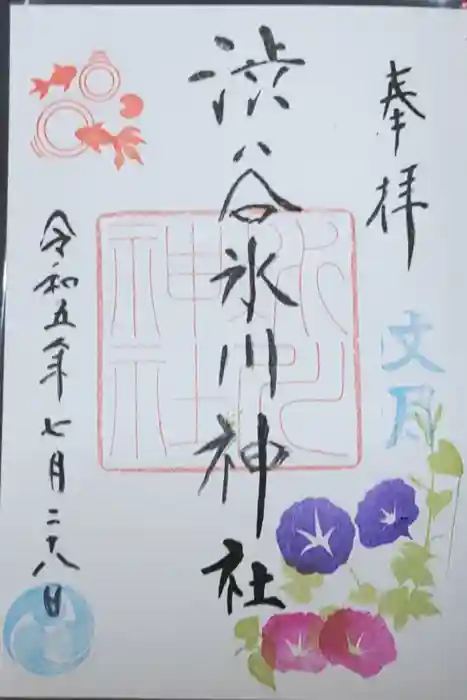 奉拝
文月
渋谷氷川神社
氷川神社
令和五年七月二十八日